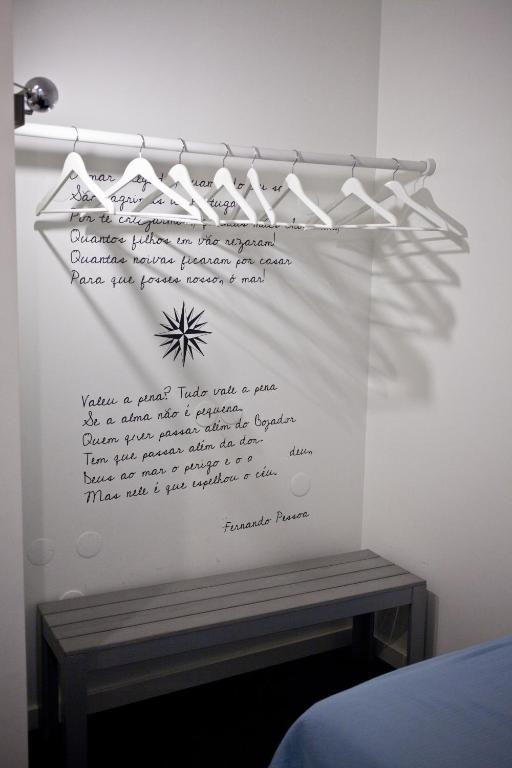 Ó mar
São lágrimas de Portugal!
Por te cruzarmos, quantas mães choraram,
Quantos filhos em vão rezaram!
Quantas noivas ficaram por casar
Para que fosses nosso, ó mar!
Valeu a pena? Tudo vale a pena
Se a alma não é pequena.
Quem quer passar além do Bojador
Tem que passar além da dor.
Deus ao mar o perigo e o deu,
Mas nele é que espelhou o céu.
Fernando Pessoa